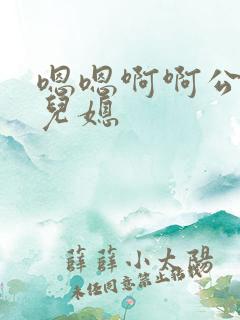 嗯嗯啊啊公
兒媳
薛薛小太陽
未经同意禁止转载